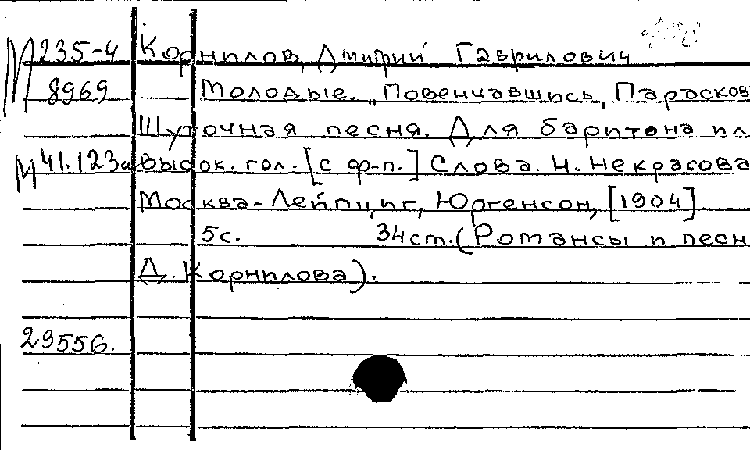 М 235-4 Корнилов, Дмитрий Гаврилович
8969 Молодые. „Повенчавшись, Парасков
Шуточная песня. Для баритона ил
М 41.123а высок. гол. [с ф-п.] Слова Н. Некрасова
Москва-Лейпциг, Юргенсон, [1904]
5с. 34см. (Романсы и песн
Д. Корнилова).
29556.